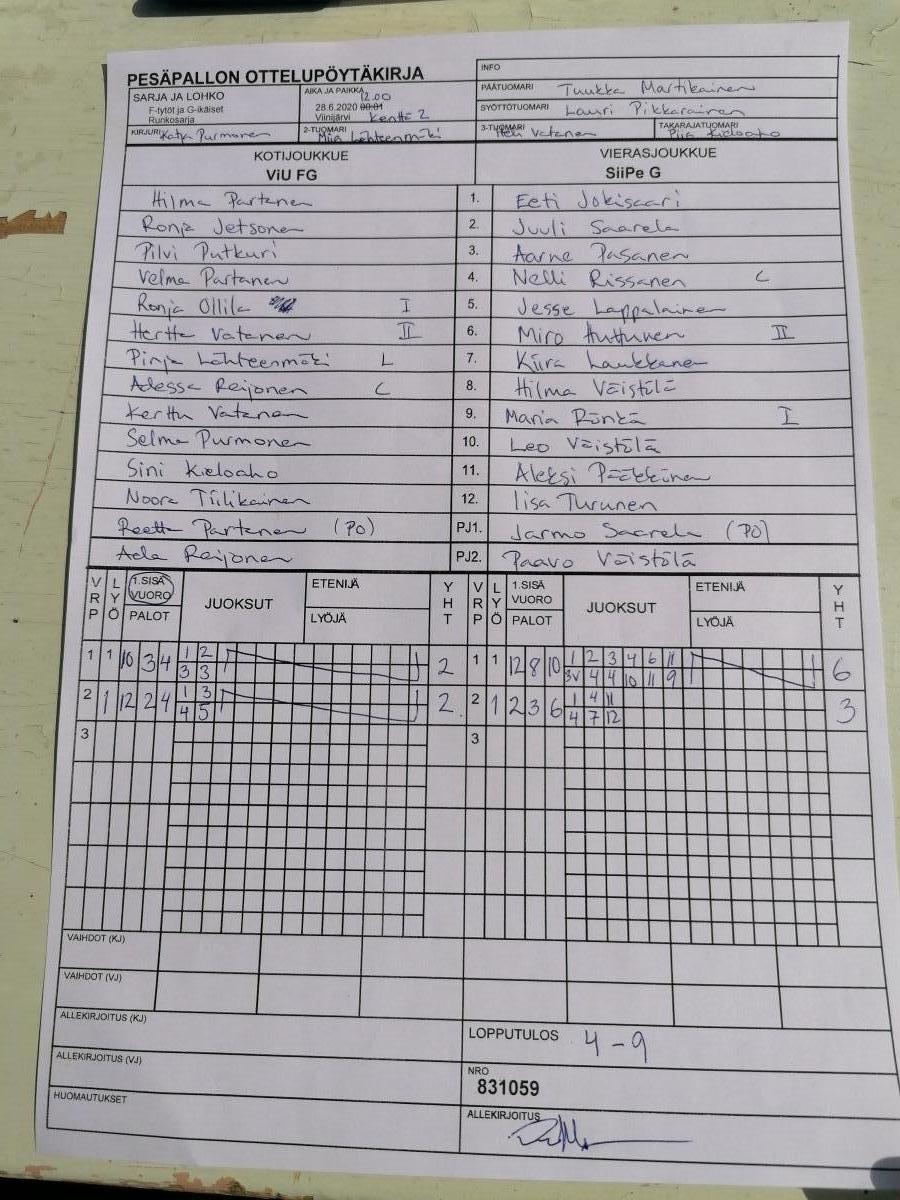 PESÄPALLON OTTELUPÖYTÄKIRJA
INFO
SARJA JA LOHKO
F-tytöt ja G-ikäiset
Runkosarja
AIKA JA PAIKKA 12.00
28.6.2020 00:01
Viinijärvi Kenttä 2
PÄÄTUOMARI Tuukka Martikainen
SYÖTTÖTUOMARI Lauri Pikkarainen
KIRJURI Katja Purmonen
2-TUOMARI Miia Lähteenmäki
3-TUOMARI Vatanen
TAKARAJATUOMARI Piia Kieloaho
KOTIJOUKKUE
ViU FG
VIERASJOUKKUE
SiiPe G
Hilma Partanen 1. Eeti Jokisaari
Ronja Jetsonen 2. Juuli Saarela
Pilvi Putkuri 3. Aarne Pasanen
Velma Partanen 4. Nelli Rissanen C
Ronja Ollila I 5. Jesse Lappalainen
Hertta Vatanen II 6. Miro Huttunen II
Pinja Lähteenmäki L 7. Kiira Laukkanen
Adessa Reijonen C 8. Hilma Väistölä
Kerttu Vatanen 9. Maria Rönkä I
Selma Purmonen 10. Leo Väistölä
Sini Kieloaho 11. Aleksi Pääkkönen
Noora Tiilikainen 12. Iisa Turunen
Reetta Partanen (PO) PJ1. Jarmo Saarela (PO)
Ada Reijonen PJ2. Paavo Väistölä
VRP LYÖ 1.SISÄ VUORO PALOT JUOKSUT ETENIJÄ LYÖJÄ YHT VRP LYÖ 1.SISÄ VUORO PALOT JUOKSUT ETENIJÄ LYÖJÄ YHT
1 1 10 3 4 1 2 2 1 1 12 8 10 1 2 3 4 6 11 6
3 3 3V 4 4 10 11 9
2 1 12 2 4 1 3 2. 2 1 2 3 6 1 4 11 3
4 5 4 7 12
3 3
VAIHDOT (KJ)
VAIHDOT (VJ)
ALLEKIRJOITUS (KJ)
LOPPUTULOS 4-9
ALLEKIRJOITUS (VJ)
NRO
831059
HUOMAUTUKSET
ALLEKIRJOITUS